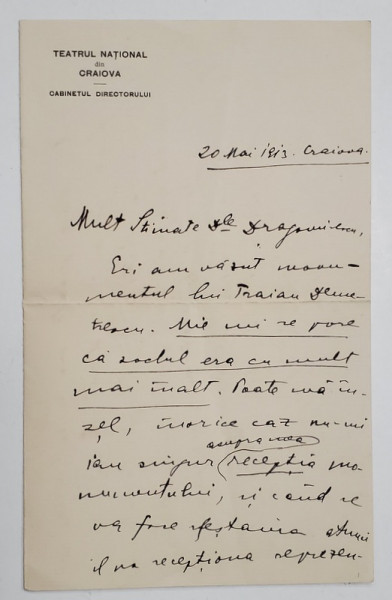 TEATRUL NAȚIONAL
din
CRAIOVA
CABINETUL DIRECTORULUI
20 Mai 1913. Craiova.
Mult Stimate Dle Dragomirescu,
Eri am văzut monu-
mentul lui Traian Deme-
trescu. Mie mi se pare
că soclul era cu mult
mai înalt. Poate mă în-
șel, în orice caz nu-mi
iau singur asupra mea recepția mo-
numentului, și când se
va face sfeștania atunci
îl va recepționa reprezen-